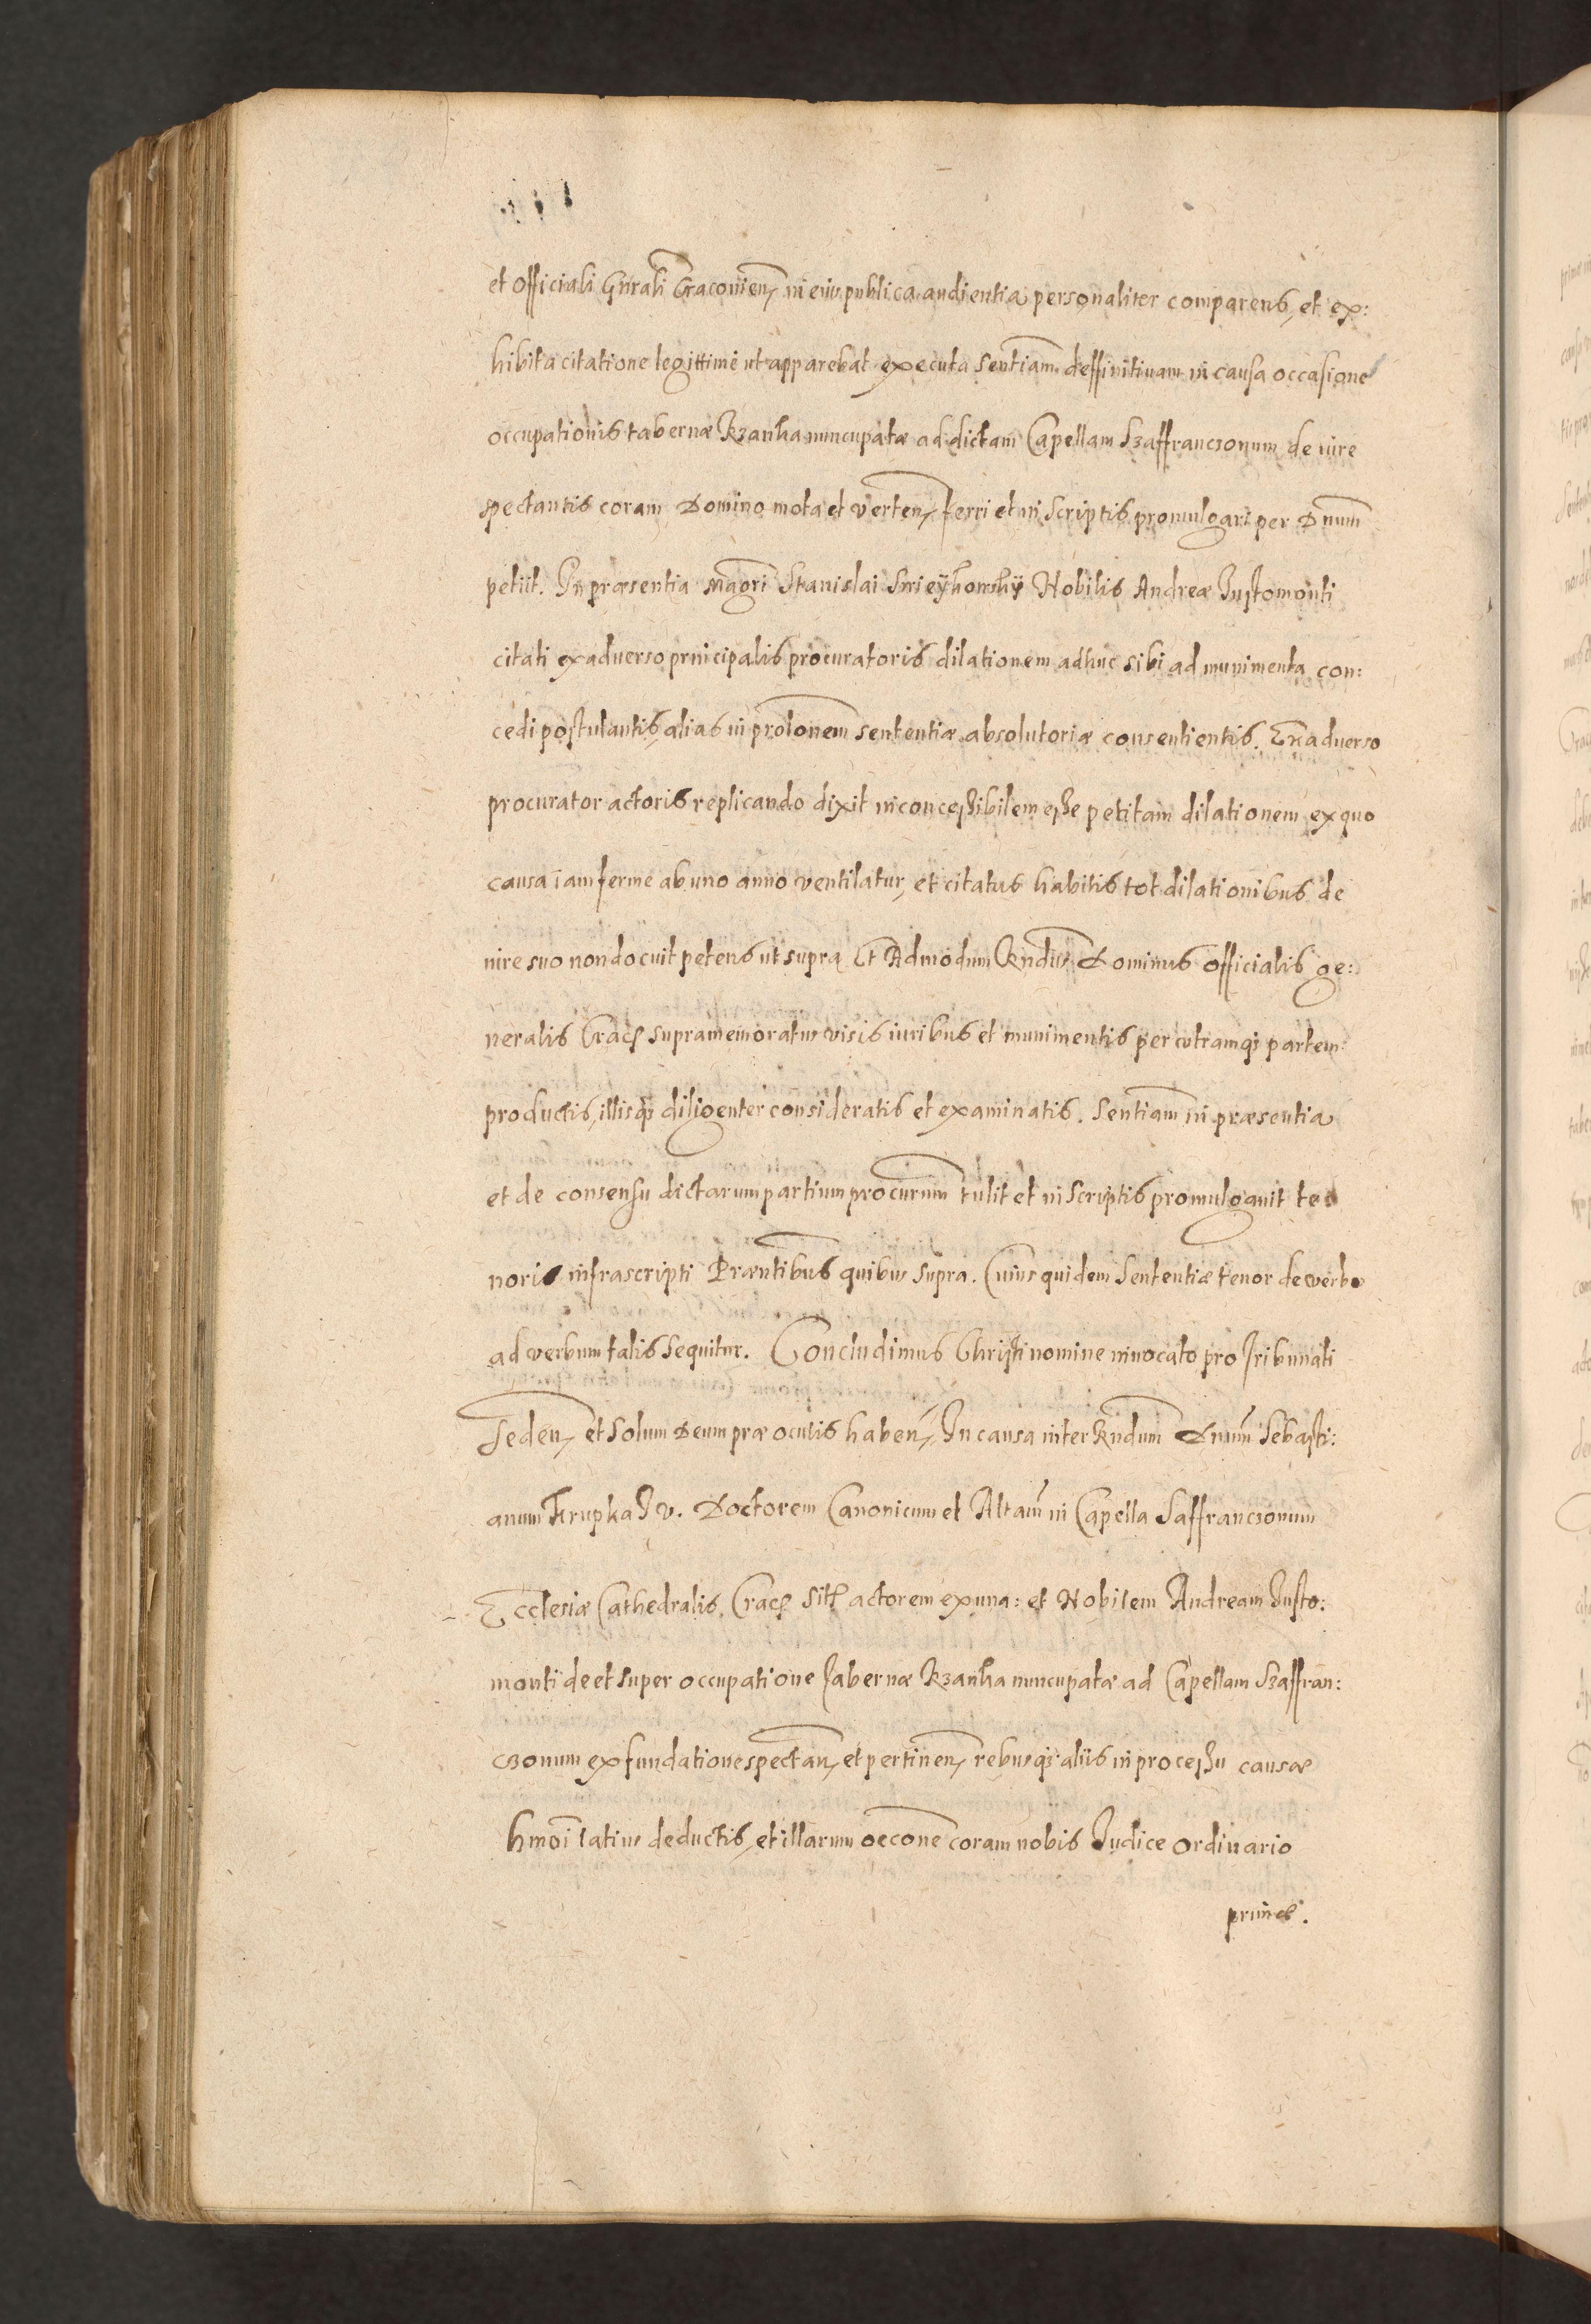 et Officiali Gnrali Cracovien, in eius publica audientia personaliter comparens, et ex:
hibita citatione legittime ut apparebat executa sentiam deffinitivam in causa occasione
occupationis tabernæ Rzanka nuncupatæ ad dictam Capellam Szaffranczonum de iure
spectantis coram Domino mota et verten, ferri et in scriptis promulgari per Dnum
petiit. In præsentia Magri Stanislai Nobilis Andreæ Justomonti
citati ex adverso principalis procuratoris dilationem adhuc sibi ad munimenta con:
cedi postulantis, alias in prolonem sententiæ absolutoriæ consentientis. Ex adverso
procurator actoris replicando dixit inconcessibilem esse petitam dilationem ex quo
causa iam ferme ab uno anno ventilatur, et citatus habitis tot dilationibus de
iure suo non docuit petens ut supra Et Admodum Rndus Dominus Officialis ge:
neralis Crac supramemoratus visis iuribus et munimentis per utramq; partem
productis, illisq; diligenter consideratis et examinatis. Sentiam in præsentia
et de consensu dictarum partium procurum tulit et in scriptis promulgavit te
noris infrascripti Præntibus quibus supra. Cuius quidem Sententiæ tenor de verbo
ad verbum talis sequitur. Concludimus Christi nomine invocato pro Tribunali
Seden, et solum Deum præ oculis haben, In causa inter Rndum Dnum Sebasti:
anum Krupka J v. Doctorem Canonicum et Altam in Capella Saffranczonum
Ecclesiæ Cathedralis, Crac sitt actorem ex una: et Nobilem Andream Justo:
monti de et super occupatione Tabernæ Rzanka nuncupatæ ad Capellam Szaffran:
czonum ex fundatione spectan, et pertinen, rebusq; aliis in processu causæ
hmoi latius deductis, et illarum oecone coram nobis Judice Ordinario